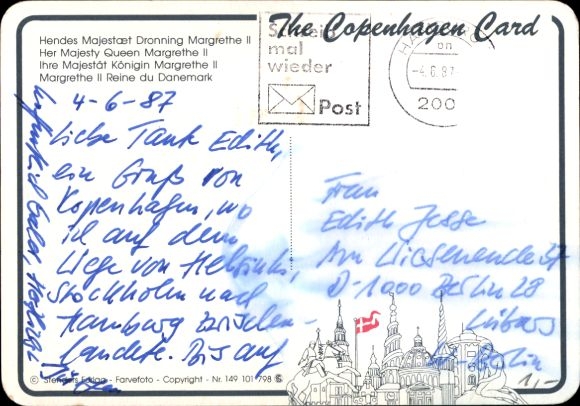 The Copenhagen Card
Hendes Majestæt Dronning Margrethe II
Her Majesty Queen Margrethe II
Ihre Majestät Königin Margrethe II
Margrethe II Reine du Danemark
Schreib
mal
wieder
Post
-4.6.87
200
4-6-87
Liebe Tante Edith,
ein Gruß von
Kopenhagen, wo
ich auf dem
Wege von Helsinki,
Stockholm nach
Hamburg zwischen-
landete. Bis auf
Frau
Edith Jesse
Am Wiesenende 37
D-1000 Berlin 28
Lübars
Berlin
1,-
© Stenders Forlag - Farvefoto - Copyright - Nr. 149 101 798